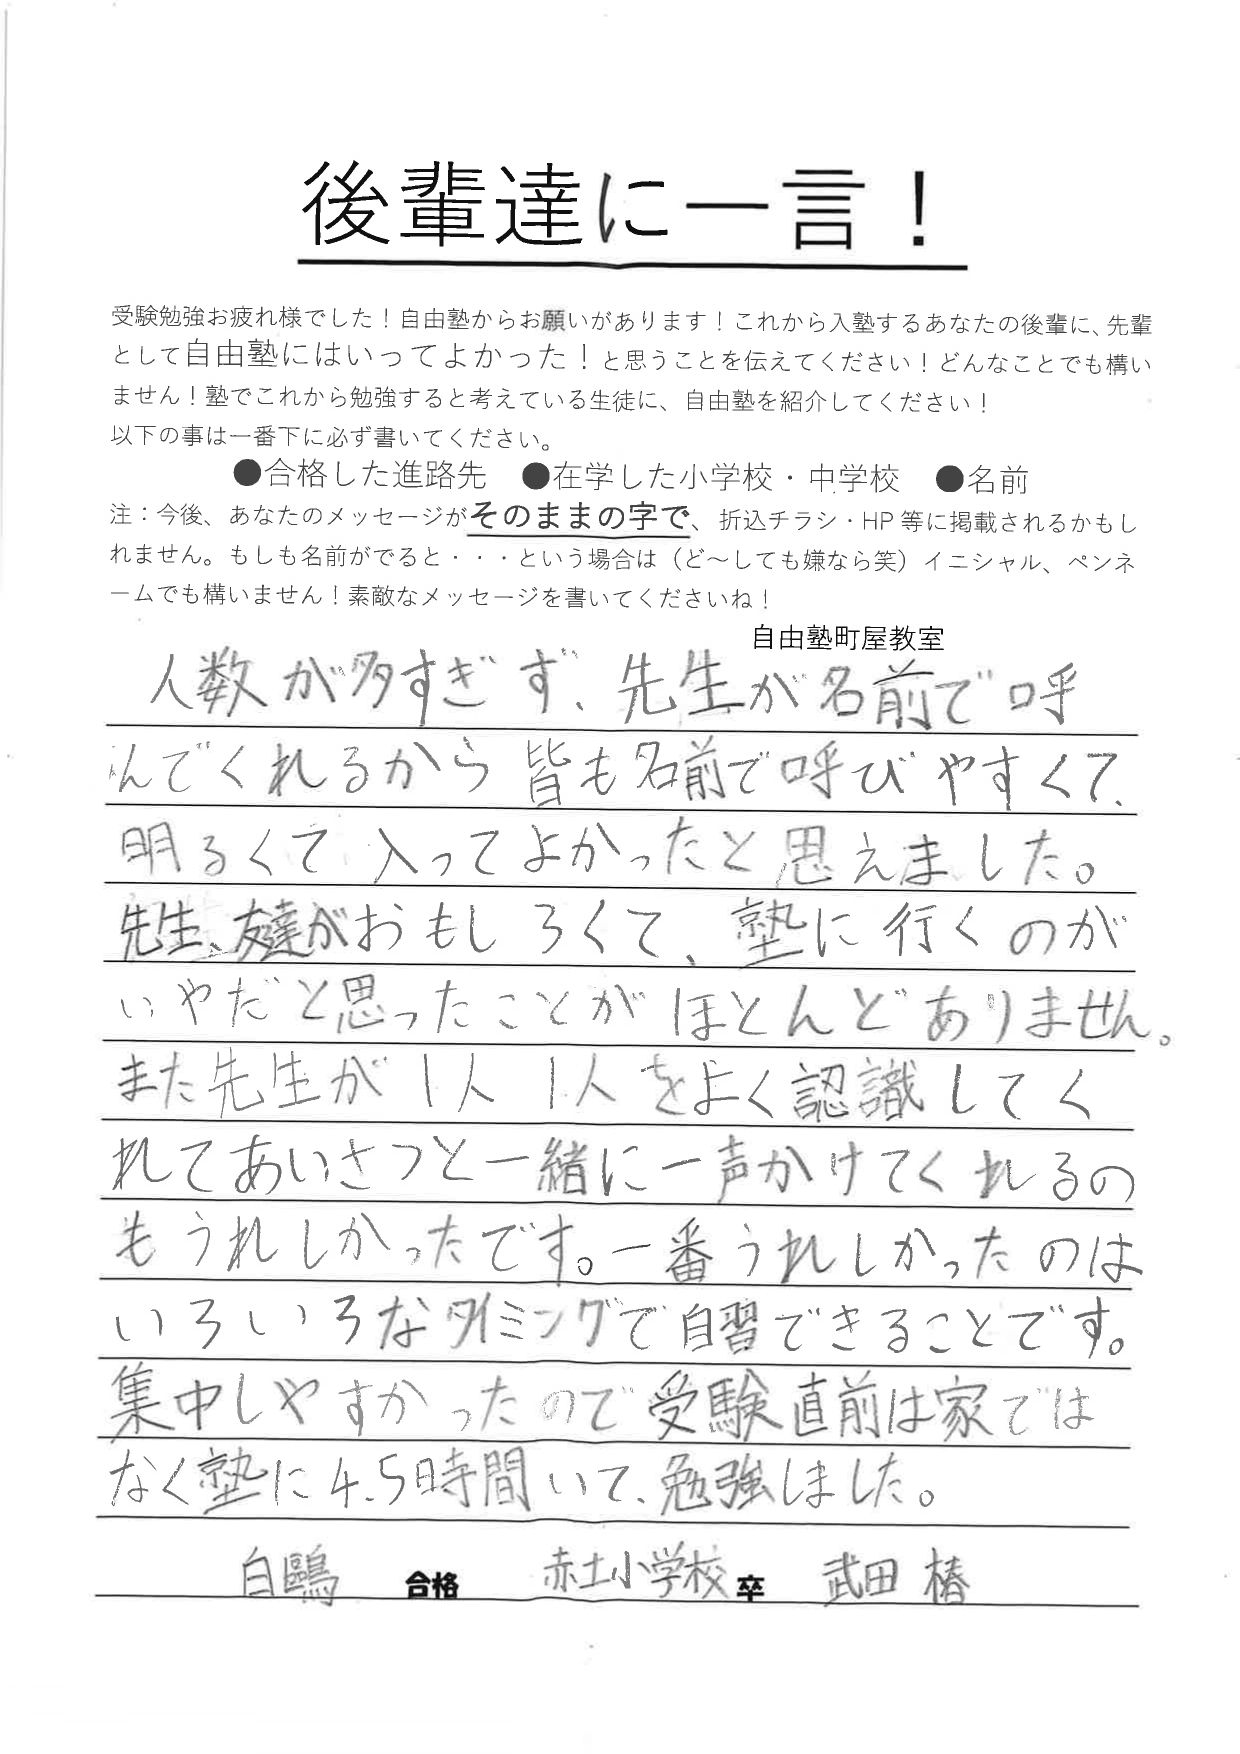 後輩達に一言！
受験勉強お疲れ様でした！自由塾からお願いがあります！これから入塾するあなたの後輩に、先輩
として自由塾にはいってよかった！と思うことを伝えてください！どんなことでも構い
ません！塾でこれから勉強すると考えている生徒に、自由塾を紹介してください！
以下の事は一番下に必ず書いてください。
●合格した進路先　●在学した小学校・中学校　●名前
注：今後、あなたのメッセージがそのままの字で、折込チラシ・HP 等に掲載されるかもし
れません。もしも名前がでると・・・という場合は（ど～しても嫌なら笑）イニシャル、ペンネ
ームでも構いません！素敵なメッセージを書いてくださいね！
自由塾町屋教室
人数が多すぎず、先生が名前で呼
んでくれるから皆も名前で呼びやすくて、
明るくて入ってよかったと思えました。
先生、友達がおもしろくて、塾に行くのが
いやだと思ったことがほとんどありません。
また先生が1人1人をよく認識してく
れてあいさつと一緒に一声かけてくれるの
もうれしかったです。一番うれしかったのは
いろいろなタイミングで自習できることです。
集中しやすかったので受験直前は家では
なく塾に4.5時間いて、勉強しました。
白鷗 合格 赤土小学校 卒 武田 椿